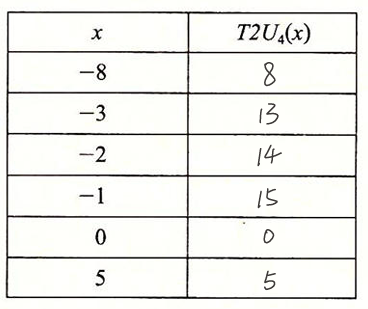 x T2U₄(x)
−8 8
−3 13
−2 14
−1 15
0 0
5 5